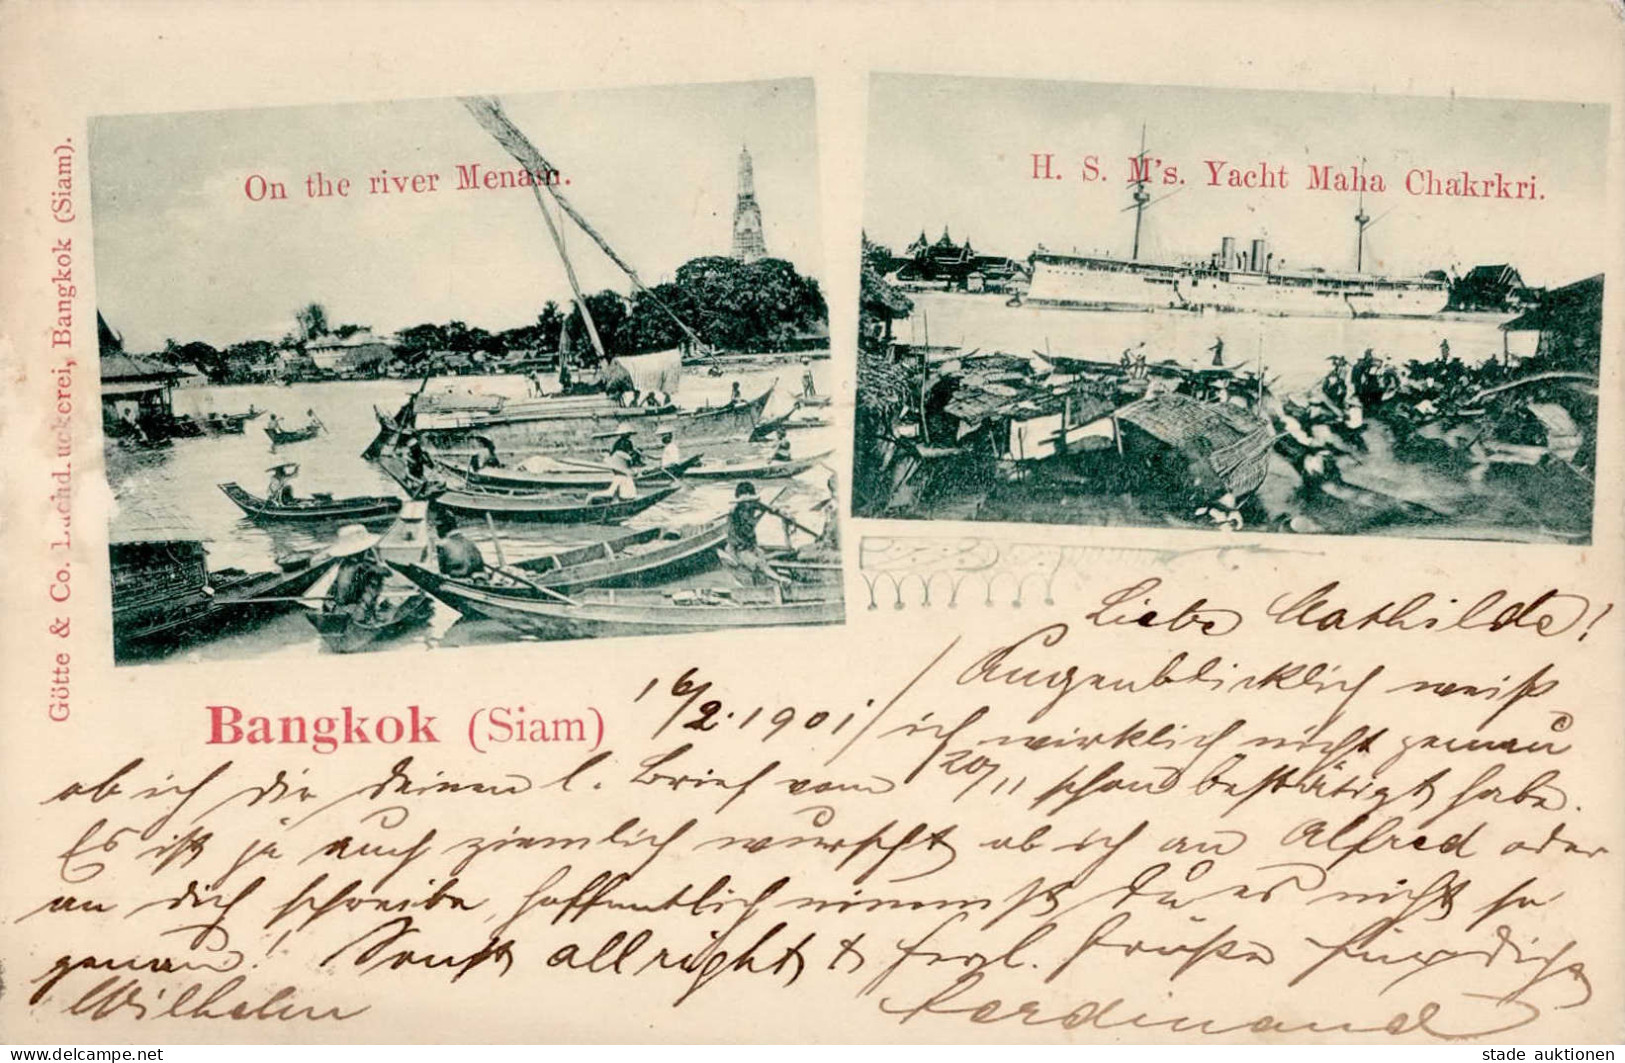 On the river Menam.
H. S. M's. Yacht Maha Chakrkri.
Götte & Co. Buchdruckerei, Bangkok (Siam).
Bangkok (Siam)
16/2. 1901
Liebe Mathilde!
Augenblicklich weiß
ich wirklich nicht genau
ob ich dir deinen l. Brief vom 20/11 schon bestätigt habe.
Es ist ja auch ziemlich wurscht ob ich an Alfred oder
an dich schreibe, hoffentlich nimmst du es nicht so
genau! Sonst all right & herzl. Grüße für dich
Wilhelm
Ferdinand
delcampe.net
stade auktionen